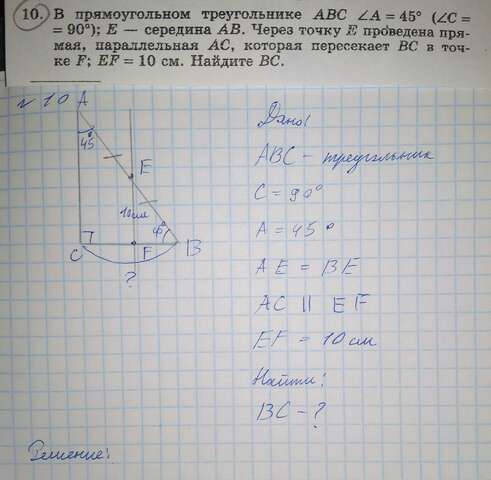 10. В прямоугольном треугольнике ABC ∠A = 45° (∠C =
= 90°); E — середина AB. Через точку E проведена пря-
мая, параллельная AC, которая пересекает BC в точ-
ке F; EF = 10 см. Найдите BC.
№ 10
A
45°
E
10см
C
F
B
?
Дано:
ABC - треугольник
C = 90°
A = 45°
AE = BE
AC || EF
EF = 10 см
Найти:
BC - ?
Решение: